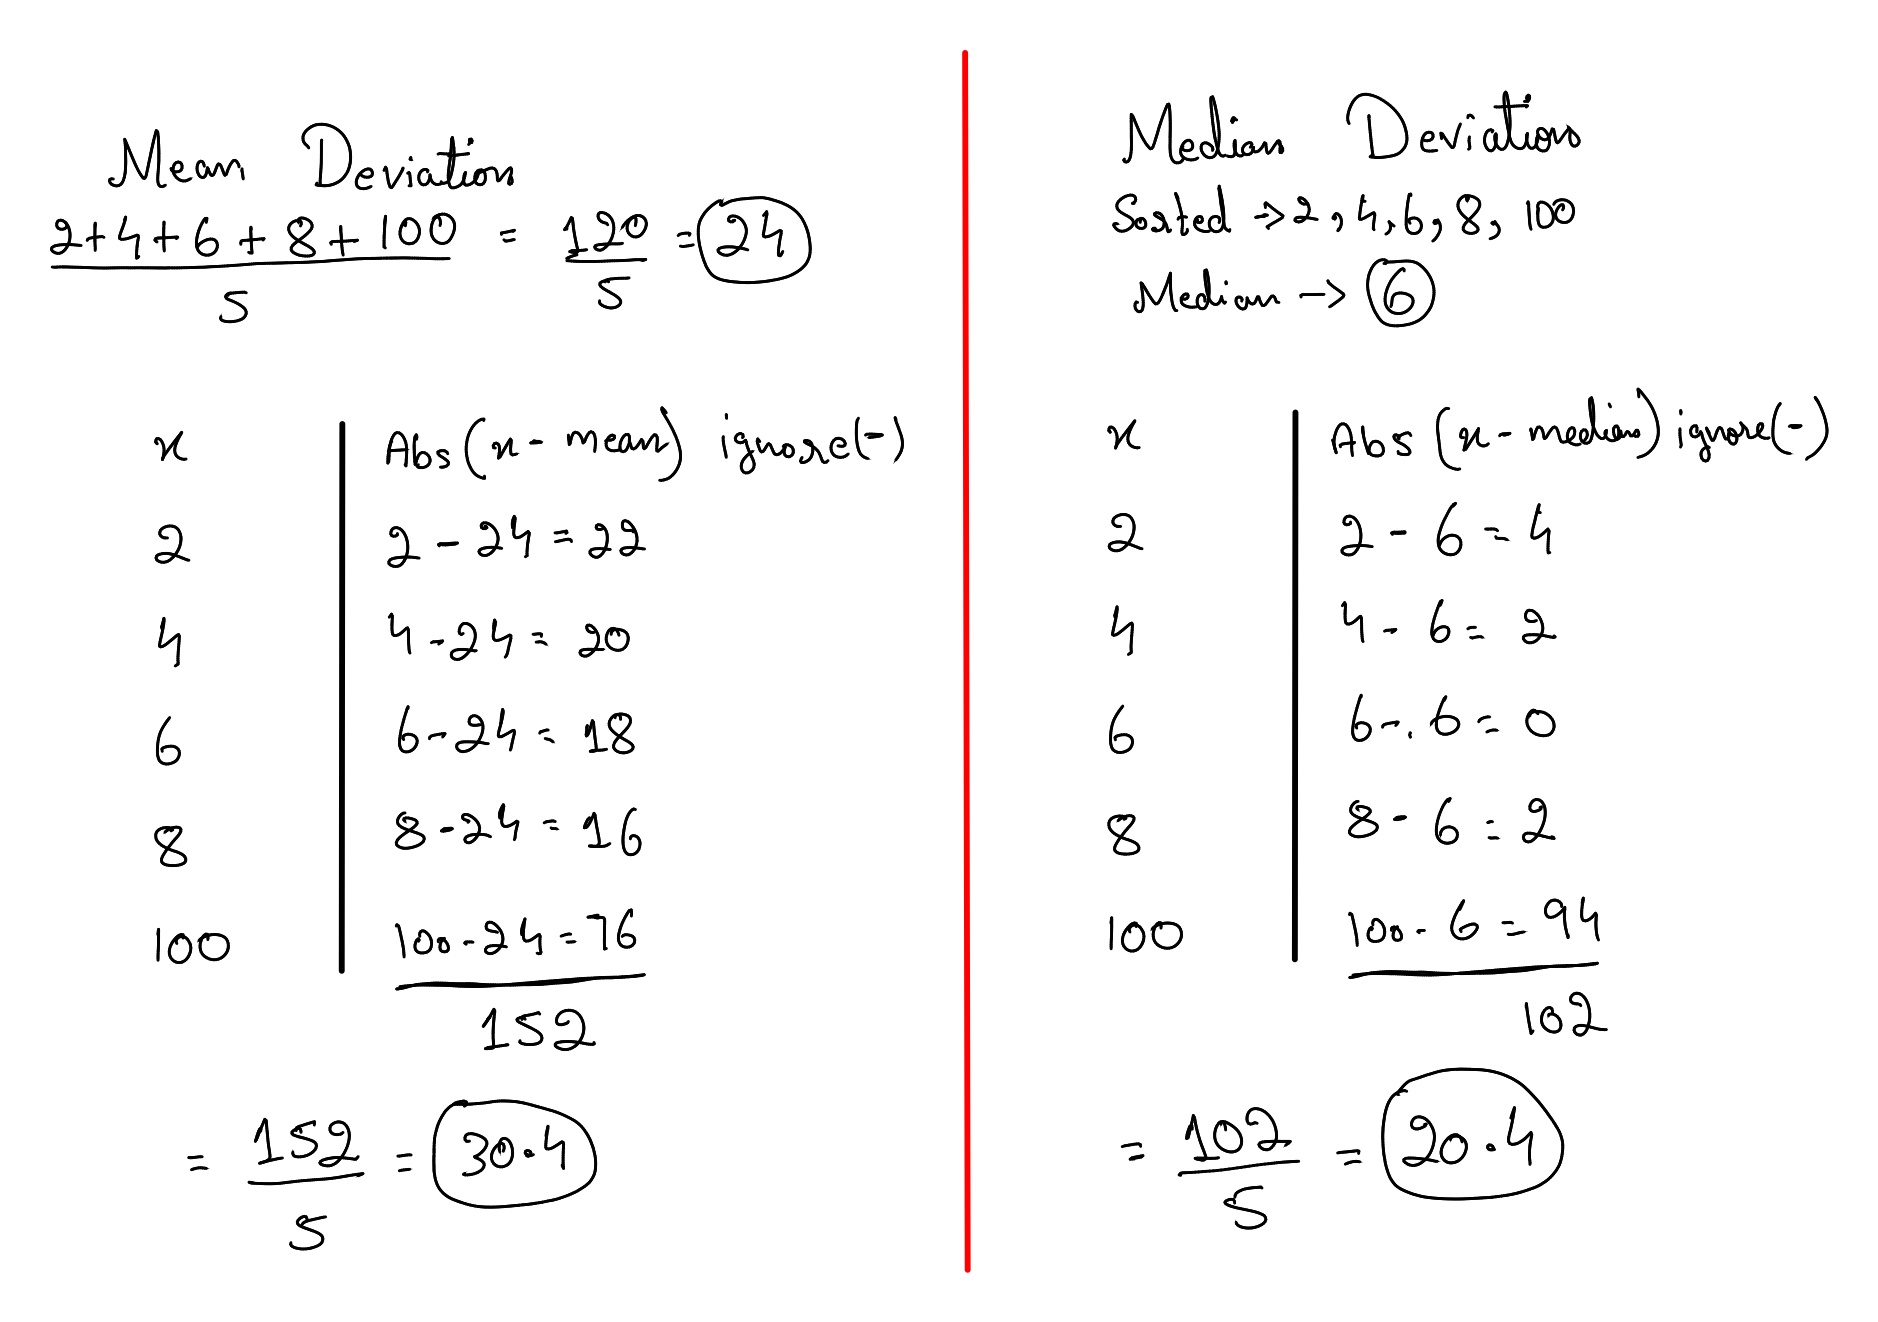 Mean Deviation
2+4+6+8+100 = 120 = 24
5 5
x Abs(x - mean) ignore(-)
2 2 - 24 = 22
4 4 - 24 = 20
6 6 - 24 = 18
8 8 - 24 = 16
100 100 - 24 = 76
152
= 152 = 30.4
5
Median Deviation
Sorted -> 2, 4, 6, 8, 100
Median -> 6
x Abs (x - median) ignore(-)
2 2 - 6 = 4
4 4 - 6 = 2
6 6 - 6 = 0
8 8 - 6 = 2
100 100 - 6 = 94
102
= 102 = 20.4
5